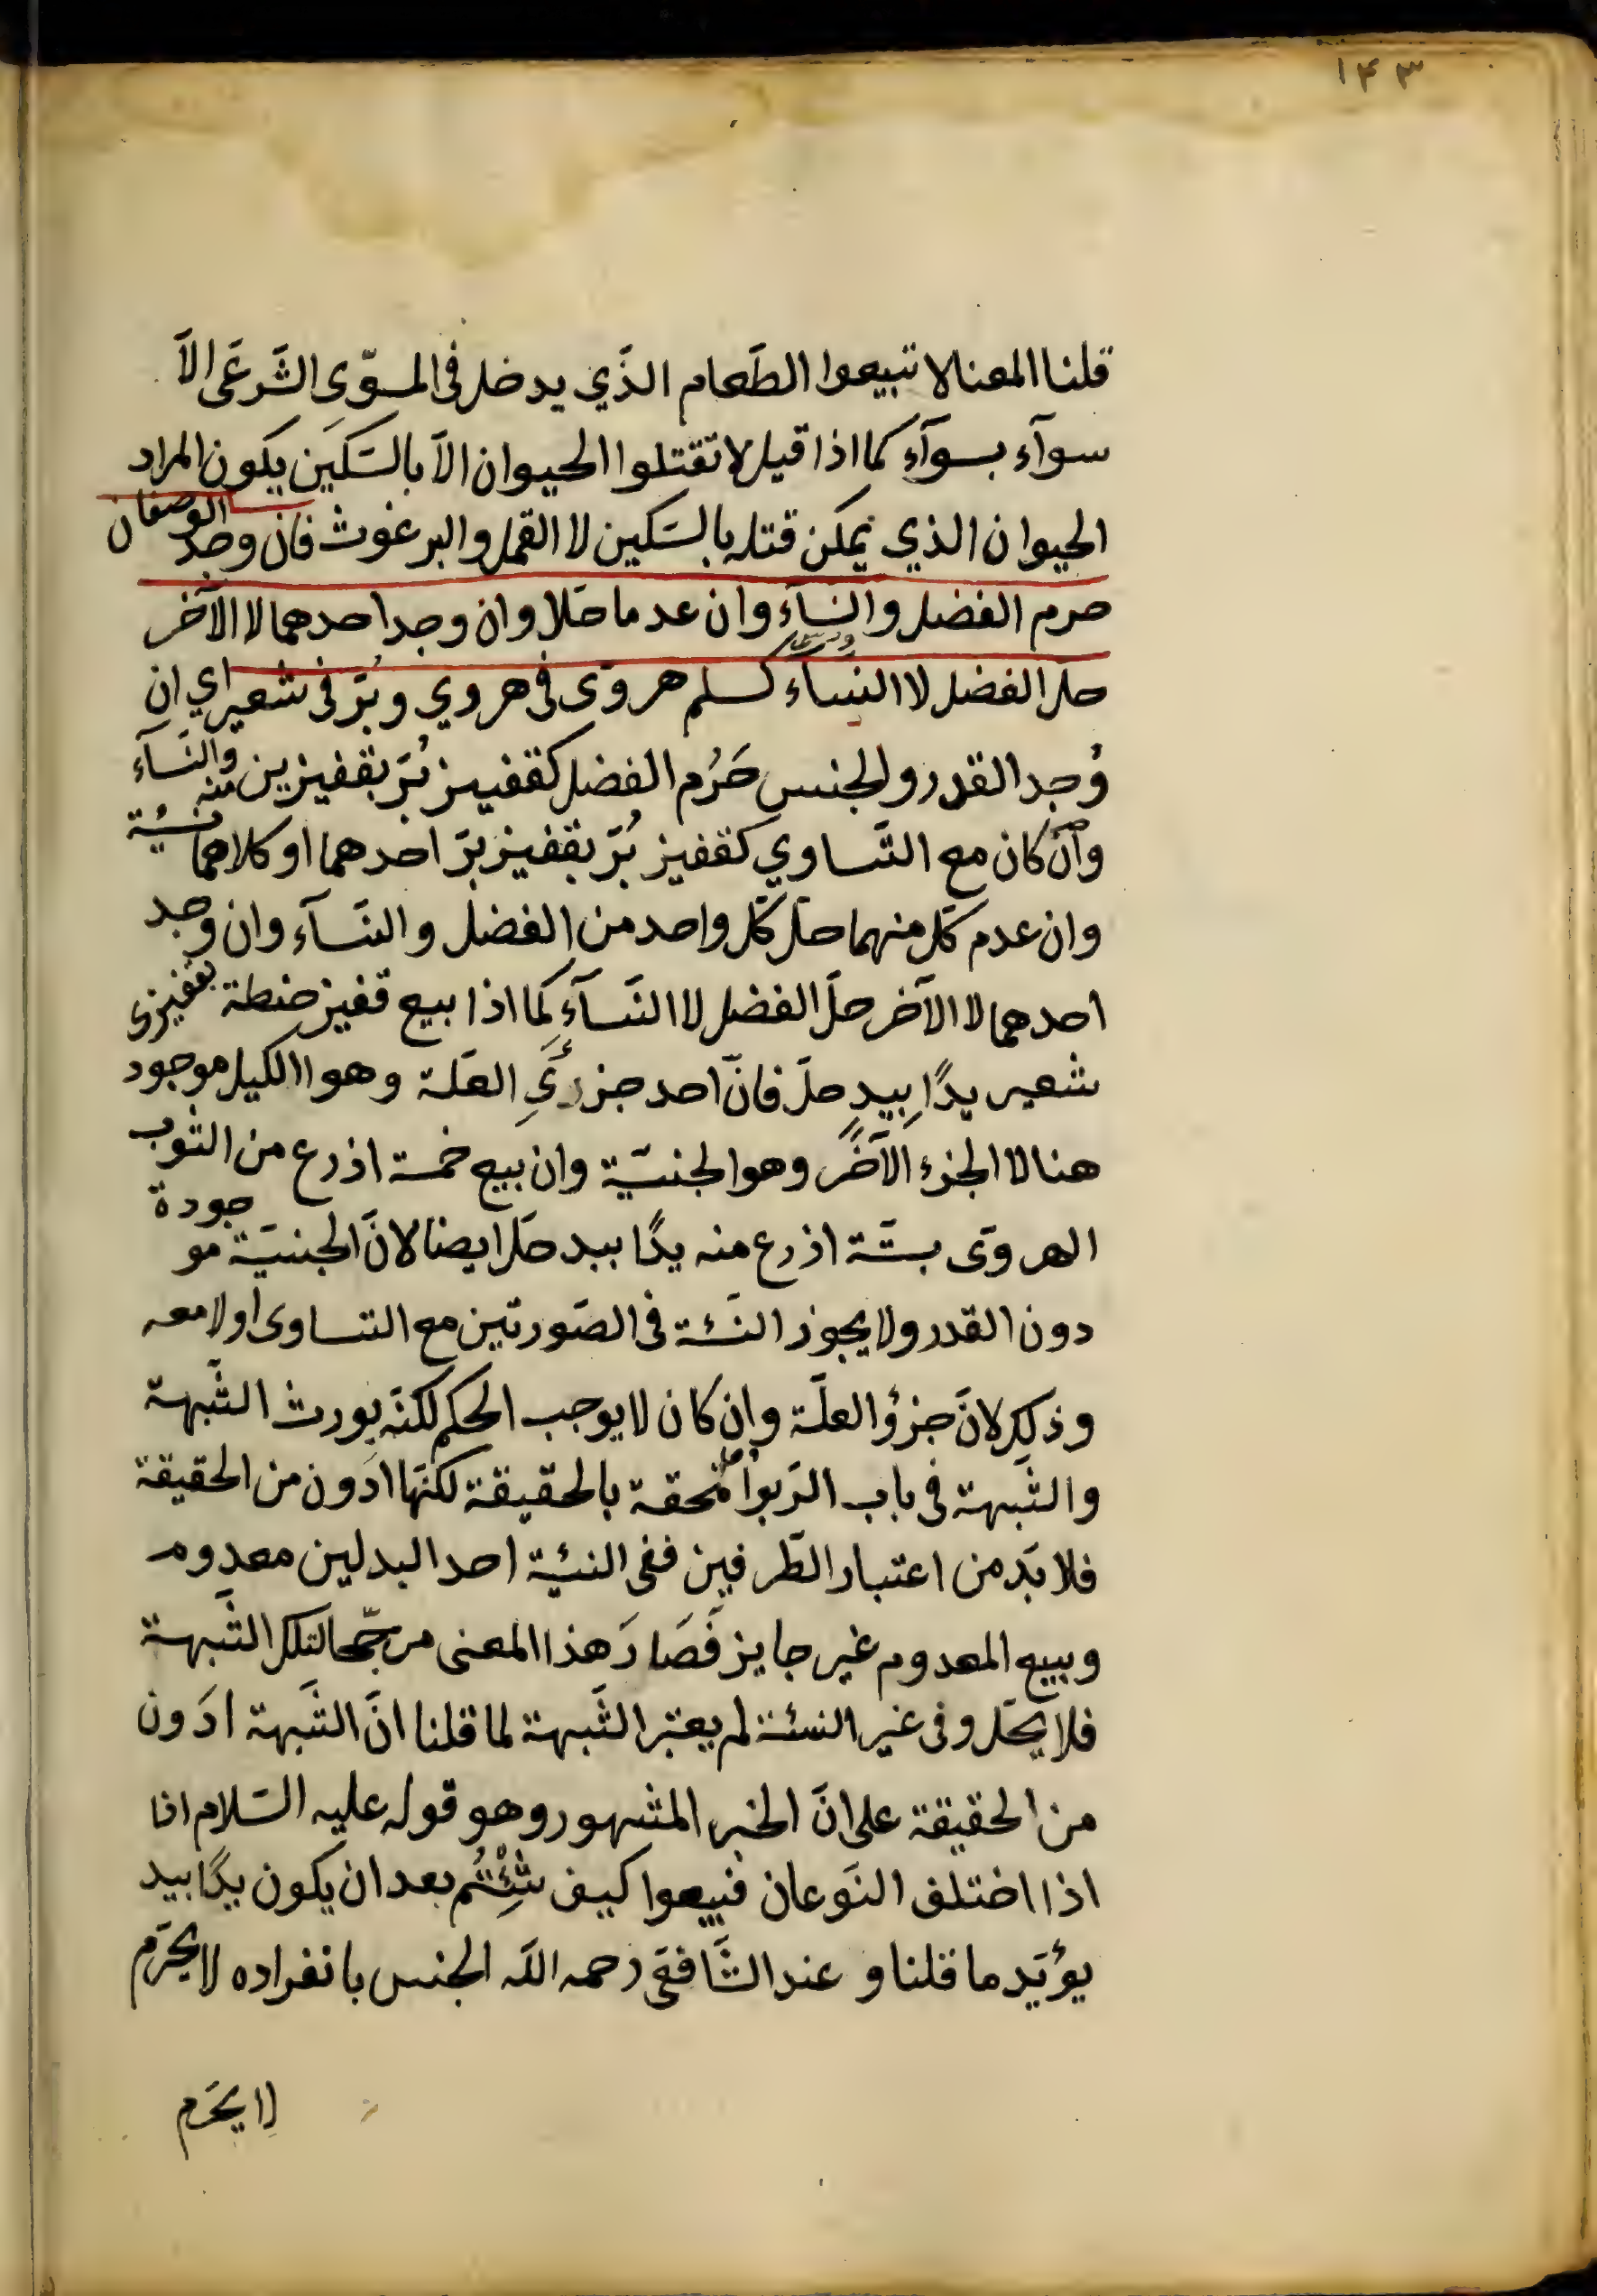 ١٤٣
قلنا المعنا لا تبيعوا الطَعام الذَي يدخل فى المسوّى الشَرعَى الاَ
سوآء بسوآء كما اذا قيل لا تقتلوا الحيوان الاَ بالسَكيَن يكون المراد
الحيوان الذي يمكن قتله بالسَكين لا القمل والبرغوث فان وجد الوصفان
حرم الفضل والنسآء وان عدما حلا وان وجد احدهما لا الآخر
حل الفضل لا النسآء كسلم هروَى فى هروي وبُرّ فى شعير اي ان
وُجد القدر والجنس حَرُم الفضل كقفيز بُرَ بقفيزين منه والنَسآء
وآن كان مع التَساوي كقفيز بُرّ بقفيز برّ احدهما او كلاهما نسيئة
وان عدم كلَ منهما حلَ كلَ واحد من الفضل والنسَآء وان وجد
احدهما لا الآخر حلَ الفضل لا النَسآءِ كما اذا بيع قفيز حنطة بقفيزى
شعير يدًا بِيدٍ حلَ فانَ احد جزئَي العلَة وهو االكيل موجود
هنا لا الجزء الآخر وهو الجنسيَة وان بيع خمسة اذرع من الثوب
الهروَى بستَة اذرع منه يدًا بيد حلَ ايضا لانَ الجنسيَة موجودة
دون القدر ولا يجوز النسَئة فى الصَورتين مع التساوى او لا معه
وذلك لانَ جزؤ العلَة وان كان لا يوجب الحكم لكنَه يورث الشَبهة
والشَبهة فى باب الرَبوا ملحقة بالحقيقة لكنهَا ادَون من الحقيقة
فلا بدَ من اعتبار الطَرفين ففى النسئية احد البدلين معدوم
وبيع المعدوم غير جايز فَصَارَ هذا المعنى مرجّحا لتلك الشَبهة
فلا يحلَ وفى غير النسئة لم يعتبر الشَبهة لما قلنا انَ الشَبهة ادَون
من الحقيقة على انَ الخبر المشهور وهو قوله عليه السَلام اذا
اذا اختلف النَوعان فبيعوا كيف شِئْتُم بعد ان يكون يدًا بيد
يؤيَد ما قلنا و عند الشَافعَى رحمه اللَه الجنس بانفراده لا يحَرّم
لا يحَرم